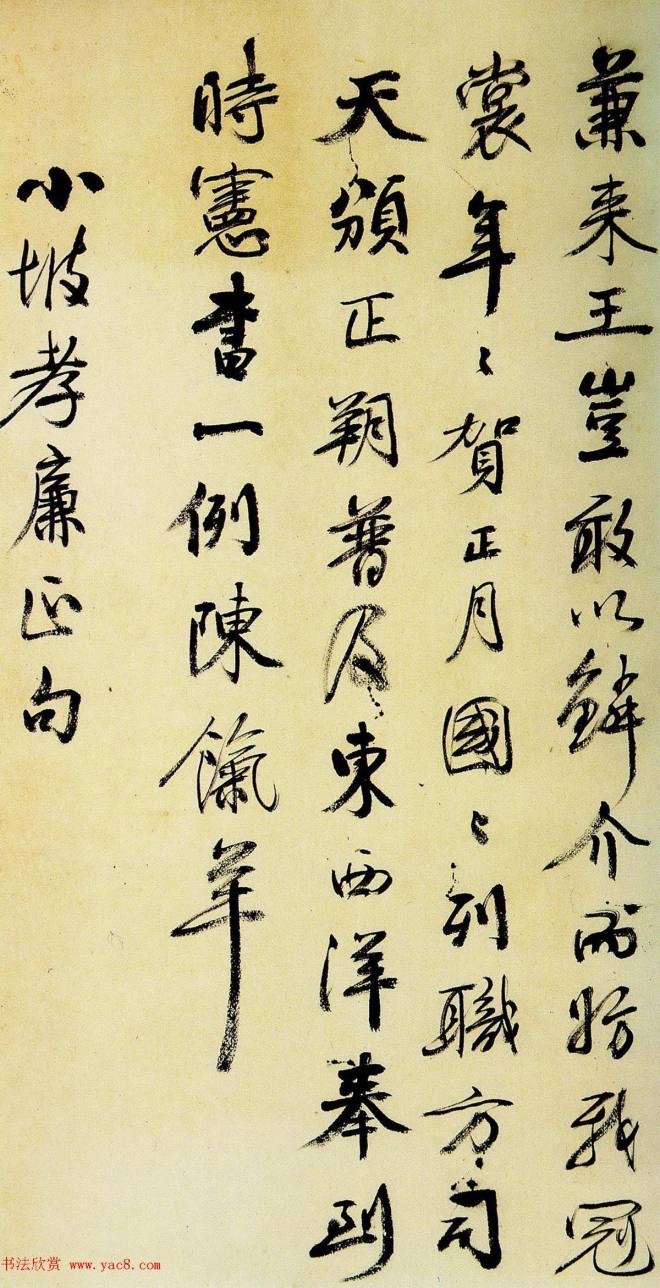 兼来王豈敢以鱗介而妨我冠
裳年〻賀正月國〻列職方司
天頒正朔普及東西洋奉到
時憲書一例陳餼羊
小坡孝廉正句
书法欣赏 www.yac8.com